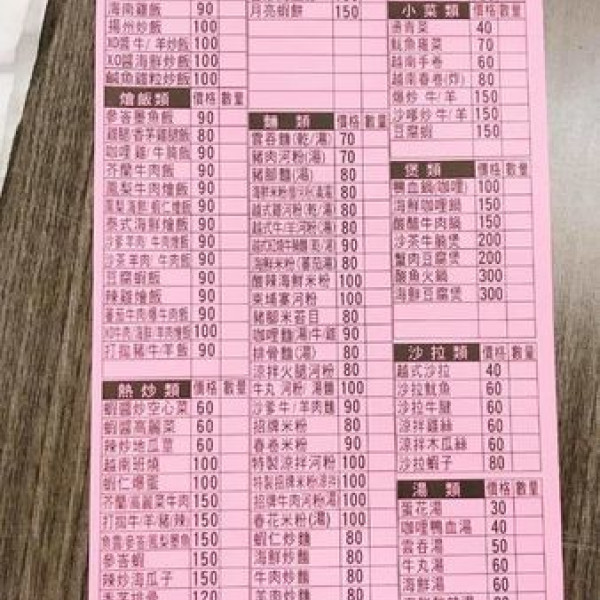 海南雞飯 90
揚州炒飯 100
XO醬牛/羊炒飯 100
XO醬海鮮炒飯 100
鹹魚雞粒炒飯 100
燴飯類 價格 數量
參峇墨魚飯 90
雞腿/香茅雞腿飯 80
咖哩雞/牛腩飯 90
芥蘭牛肉飯 90
鳳梨牛肉燴飯 90
鳳梨海鮮/蝦仁燴飯 90
泰式海鮮燴飯 90
沙爹羊肉/牛肉燴飯 90
沙茶羊肉/牛肉飯 90
豆腐蝦飯 90
辣雞燴飯 90
蕃茄牛肉/爆牛肉飯 90
XO牛肉/海鮮/羊肉燴飯 100
打拋豬牛/羊飯 90
熱炒類 價格 數量
蝦醬炒空心菜 60
蝦醬高麗菜 60
辣炒地瓜葉 60
越南斑燒 100
蝦仁爆蛋 100
芥蘭/高麗菜牛肉 150
打拋牛/羊/豬(辣) 150
150
參峇蝦 150
辣炒海瓜子 150
香茅排骨 120
月亮蝦餅 150
麵類 價格 數量
雲吞麵(乾/湯) 70
豬肉河粉(湯) 70
豬腳麵(湯) 80
80
越式雞河粉(乾/湯) 80
越式牛/羊河粉(湯) 80
90
海鮮米粉(蕃茄湯) 80
酸辣海鮮米粉 100
柬埔寨河粉 100
豬腳米苔目 80
咖哩麵(湯)牛雞 90
排骨麵(湯) 80
涼拌火腿河粉 80
牛丸河粉/湯麵 100
沙爹牛/羊肉麵 90
招牌米粉 80
春卷米粉 90
特製涼拌河粉 100
特製招牌米粉涼拌 100
招牌牛肉河粉(湯) 100
春花米粉(湯) 100
蝦仁炒麵 80
海鮮炒麵 80
牛肉炒麵 80
羊肉炒麵 80
小菜類 價格 數量
燙青菜 40
魷魚蕹菜 70
越南手卷 60
越南春卷(炸) 80
爆炒牛/羊 150
沙嗲炒牛/羊 150
豆腐蝦 150
煲類 價格 數量
鴨血鍋(咖哩) 100
海鮮咖哩鍋 150
酸醋牛肉鍋 150
沙茶牛腩煲 200
蟹肉豆腐煲 200
酸魚火鍋 300
海鮮豆腐煲 300
沙拉類 價格 數量
越式沙拉 40
沙拉魷魚 60
沙拉牛腱 60
涼拌雞絲 60
涼拌木瓜絲 60
沙拉蝦子 80
湯類 價格 數量
蛋花湯 30
咖哩鴨血湯 40
雲吞湯 50
牛丸湯 60
海鮮湯 60